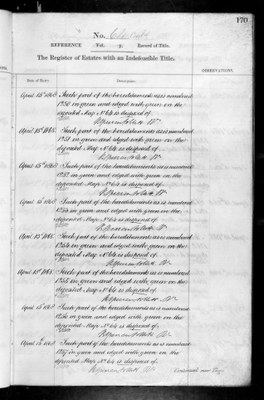 170
No.
REFERENCE Vol. p. Record of Title.
The Register of Estates with an Indefeasible Title.
OBSERVATIONS.
Date of Entry. Description.
April 15th 1865 Such part of the hereditaments as is numbered
in green and edged with green on the
deposited Map No 64 is disposed of.
April 15th 1865 Such part of the hereditaments as is numbered
in green and edged with green on the
deposited Map No 64 is disposed of.
April 15th 1865 Such part of the hereditaments as is numbered
in green and edged with green on the
deposited Map No 64 is disposed of.
April 15th 1865 Such part of the hereditaments as is numbered
in green and edged with green on the
deposited Map No 64 is disposed of.
April 15th 1865 Such part of the hereditaments as is numbered
in green and edged with green on the
deposited Map No 64 is disposed of.
April 15th 1865 Such part of the hereditaments as is numbered
in green and edged with green on the
deposited Map No 64 is disposed of.
April 15th 1865 Such part of the hereditaments as is numbered
in green and edged with green on the
deposited Map No 64 is disposed of.
April 15th 1865 Such part of the hereditaments as is numbered
in green and edged with green on the
deposited Map No 64 is disposed of.
Continued next Page